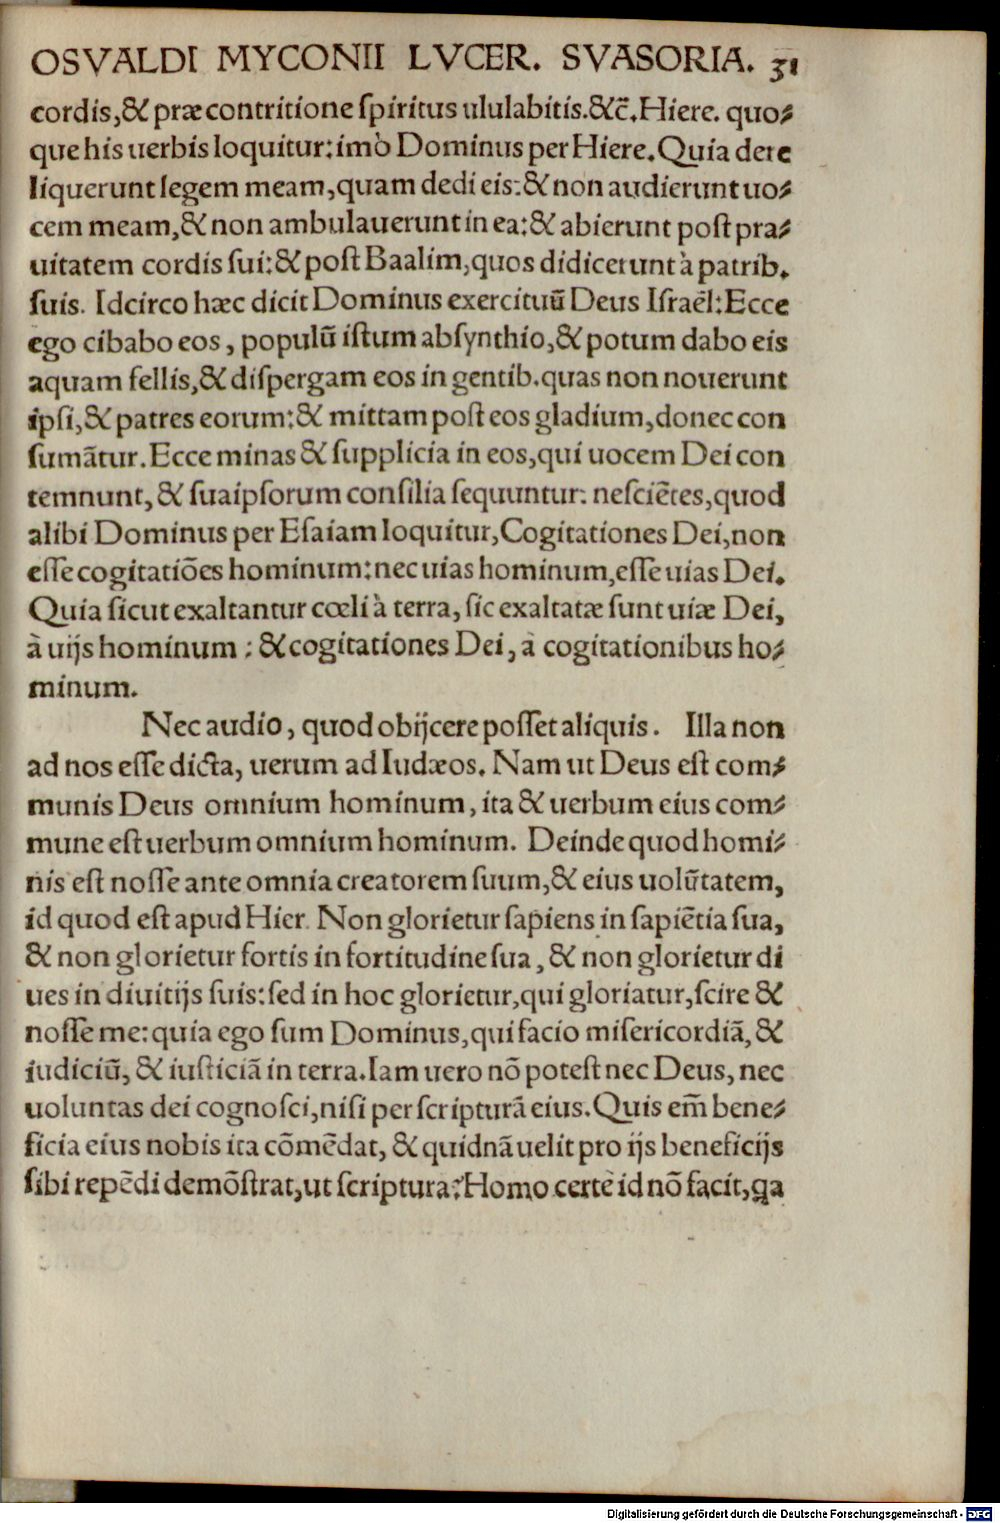 OSVALDI MYCONII LVCER. SVASORIA. 31
cordis,& præ contritione ſpiritus ululabitis.&c̃.Hiere. quo⸗
que his uerbis loquitur:imò Dominus per Hiere.Quia dere
liquerunt legem meam,quam dedi eis:& non audierunt uo⸗
cem meam,& non ambulauerunt in ea:& abierunt poſt pra⸗
uitatem cordis ſui:& poſt Baalim,quos didicerunt à patrib.
ſuis. Idcirco hæc dicit Dominus exercituũ Deus Iſraẽl:Ecce
ego cibabo eos, populũ iſtum abſynthio,& potum dabo eis
aquam fellis,& diſpergam eos in gentib.quas non nouerunt
ipſi,& patres eorum:& mittam poſt eos gladium,donec con
ſumãtur.Ecce minas & ſupplicia in eos,qui uocem Dei con
temnunt,& ſuaipſorum conſilia ſequuntur: neſciẽtes,quod
alibi Dominus per Eſaiam loquitur,Cogitationes Dei,non
eſſe cogitatiões hominum:nec uias hominum,eſſe uias Dei.
Quia ſicut exaltantur cœli à terra, ſic exaltatæ ſunt uiæ Dei,
à uijs hominum : & cogitationes Dei, à cogitationibus ho⸗
minum.
Nec audio, quod obijcere poſſet aliquis. Illa non
ad nos eſſe dicta, uerum ad Iudæos. Nam ut Deus eſt com⸗
munis Deus omnium hominum, ita & uerbum eius com⸗
mune eſt uerbum omnium hominum. Deinde quod homi⸗
nis eſt noſſe ante omnia creatorem ſuum,& eius uolũtatem,
id quod eſt apud Hier. Non glorietur ſapiens in ſapiẽtia ſua,
& non glorietur fortis in fortitudine ſua, & non glorietur di
ues in diuitijs ſuis:ſed in hoc glorietur,qui gloriatur,ſcire &
noſſe me:quia ego ſum Dominus,qui facio miſericordiã, &
iudiciũ, & iuſticiã in terra.Iam uero nõ poteſt nec Deus, nec
uoluntas dei cognoſci,niſi per ſcripturã eius.Quis em̃ bene⸗
ficia eius nobis ita cõmẽdat, & quidnã uelit pro ijs beneficijs
ſibi repẽdi demõſtrat,ut ſcriptura? Homo certè id nõ facit,qa
Digitalisierung gefördert durch die Deutsche Forschungsgemeinschaft - DFG